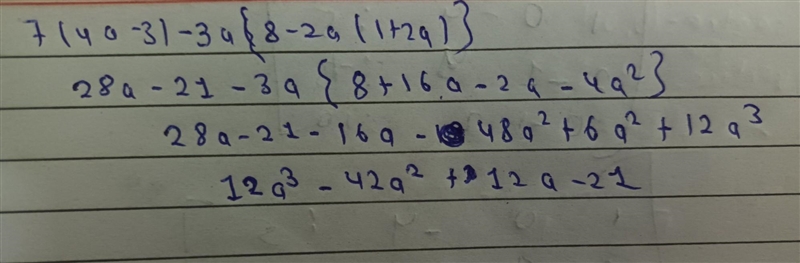 7(4a-3)-3a{8-2a(1+2a)}
28a-21-3a{8+16a-2a-4a²}
28a-21-16a-48a²+6a²+12a³
12a³-42a²+12a-21